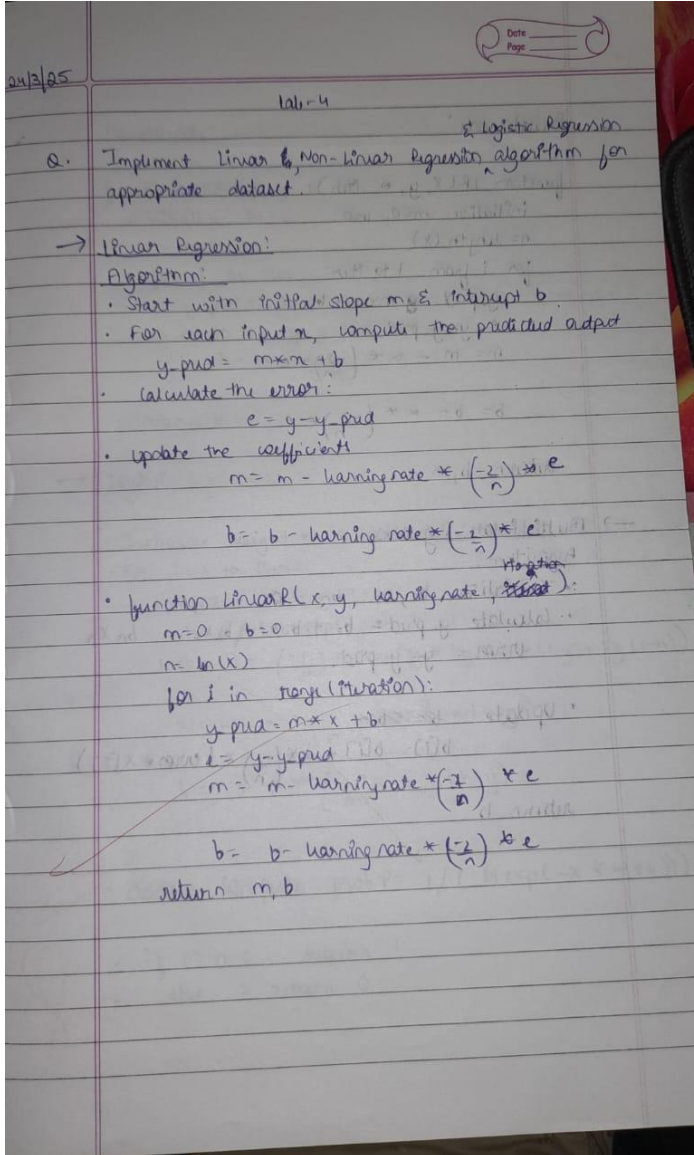 Date
Page
24/3/25
Lab-4
& Logistic Regression
Q. Implement Linear, Non-Linear Regression ^ algorithm for
appropriate dataset.
→ Linear Regression:
Algorithm:
· Start with initial slope m & intercept b.
· For each input x, compute the predicted output
y-pred = m*x + b
· Calculate the error:
e = y - y-pred
· update the coefficients
m = m - learning rate * (-2/n) * e
b = b - learning rate * (-2/n) * e
iteration
· function LinearR(x, y, learning rate, ):
m=0 b=0
n= len(x)
for i in range(iteration):
y-pred = m*x + b
e = y-y-pred
m = m- learning rate *(-2/n) * e
b = b- learning rate *(-2/n) * e
return m, b